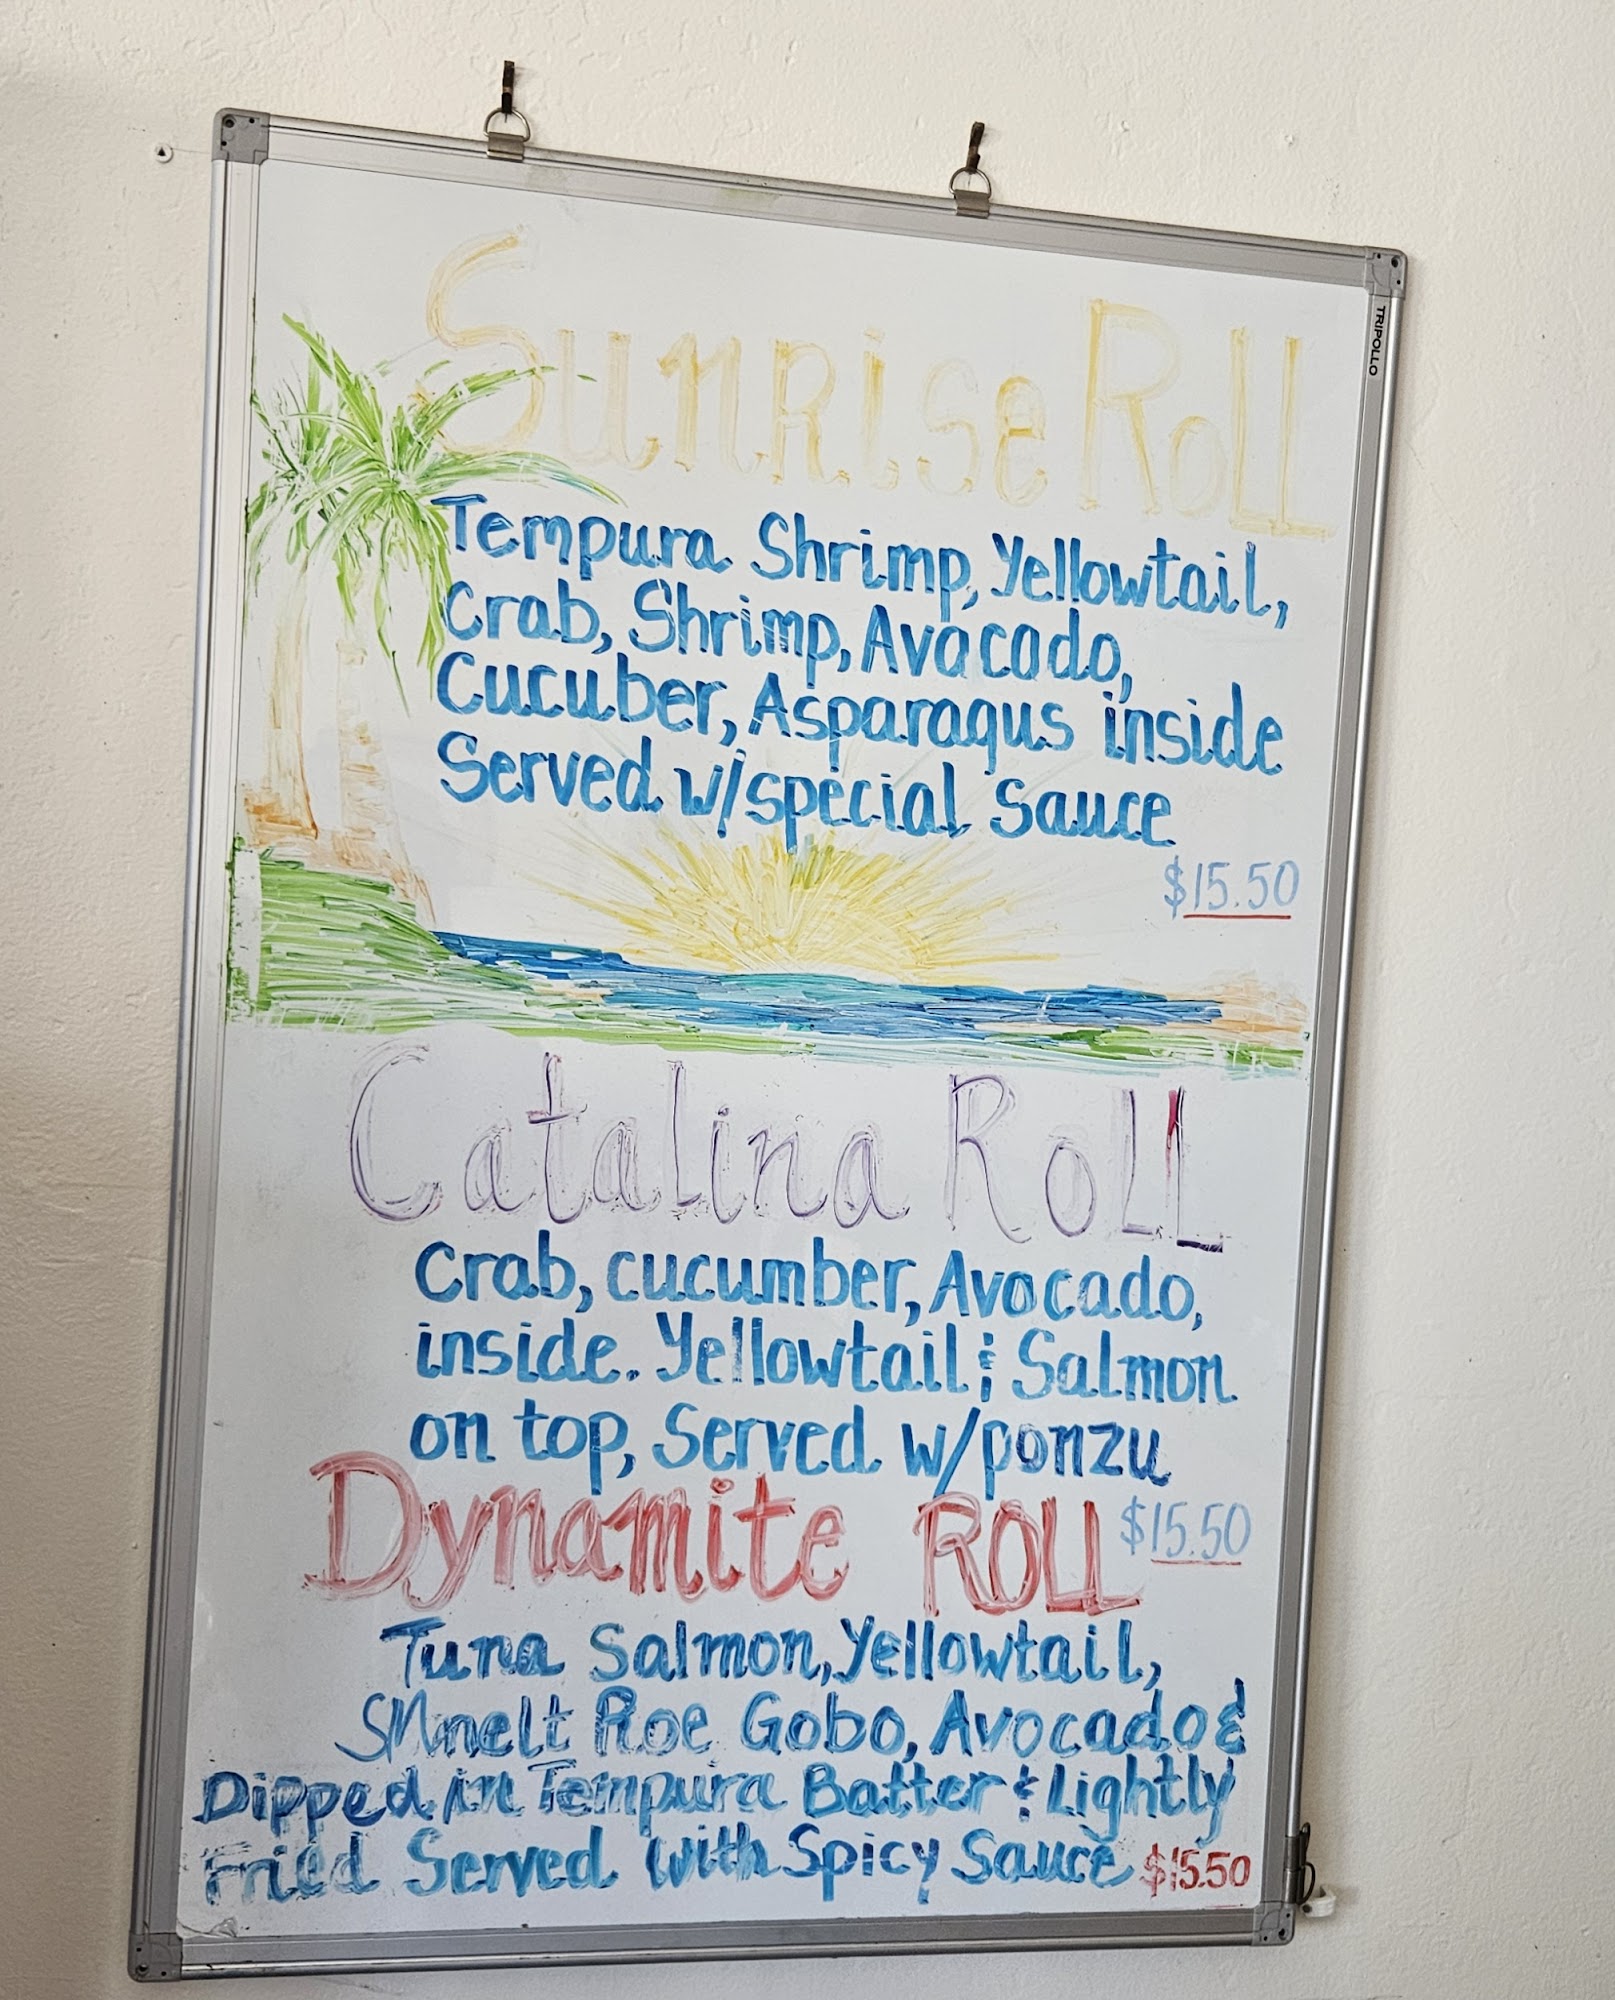 TRIPOLLO
Sunrise Roll
Tempura Shrimp, Yellowtail,
Crab, Shrimp, Avocado,
Cucuber, Asparagus inside
Served w/special sauce
$15.50
Catalina Roll
Crab, cucumber, Avocado,
inside. Yellowtail & Salmon
on top, Served w/ponzu
Dynamite ROLL $15.50
Tuna Salmon, Yellowtail,
SMnelt Roe Gobo, Avocado &
Dipped in Tempura Batter & Lightly
Fried Served with Spicy Sauce $15.50